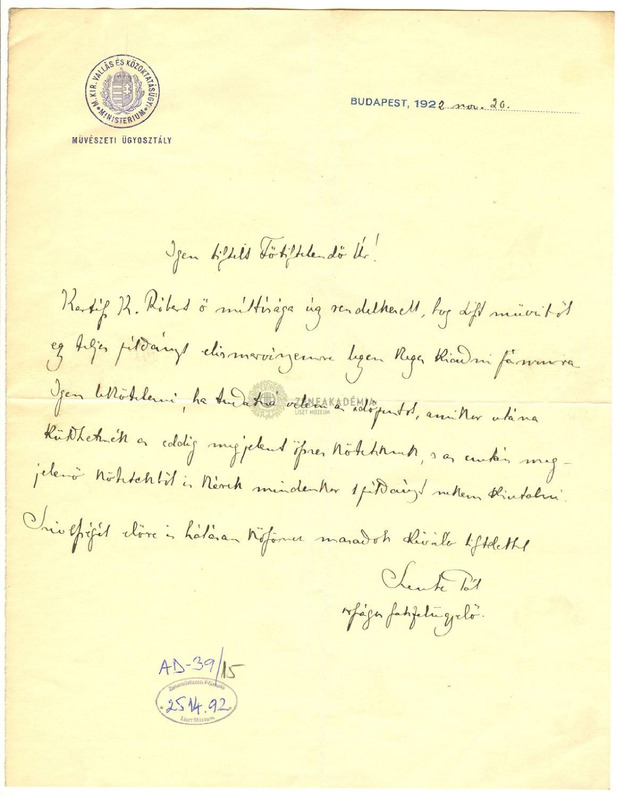 M. KIR. VALLÁS ÉS KÖZOKTATÁSÜGYI MINISTERIUM
MŰVÉSZETI ÜGYOSZTÁLY
BUDAPEST, 1922 nov. 20.
Igen tisztelt Főtisztelendő Úr!
K. Róbert ő méltósága úg rendelkezett, hog Liszt műveiből
eg teljes példányt elismervényemre legen keges kiadni számomra
Igen lekötelezne, ha tudatná velem az időpontot, amikor utána
küldhetnék az eddig megjelent összes köteteknek, s az ezután meg-
jelenő kötetekből is kérek mindenkor 1 példányt nekem kiutalni.
Szivességét előre is hálásan köszönve maradok kiváló tisztelettel
Pál
országos szakfelügyelő.
ZENEAKADÉMIA
LISZT MÚZEUM
AD-39/15
2514.92
Liszt Múzeum